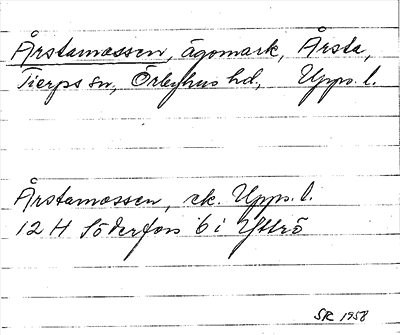 Årstamossen, ägomark, Årsta,
Tierps sn, Örbyhus hd, Upps. l.
Årstamossen, ek. Upps. l.
12 H Söderfors 6 i Yttrö
SR 1958